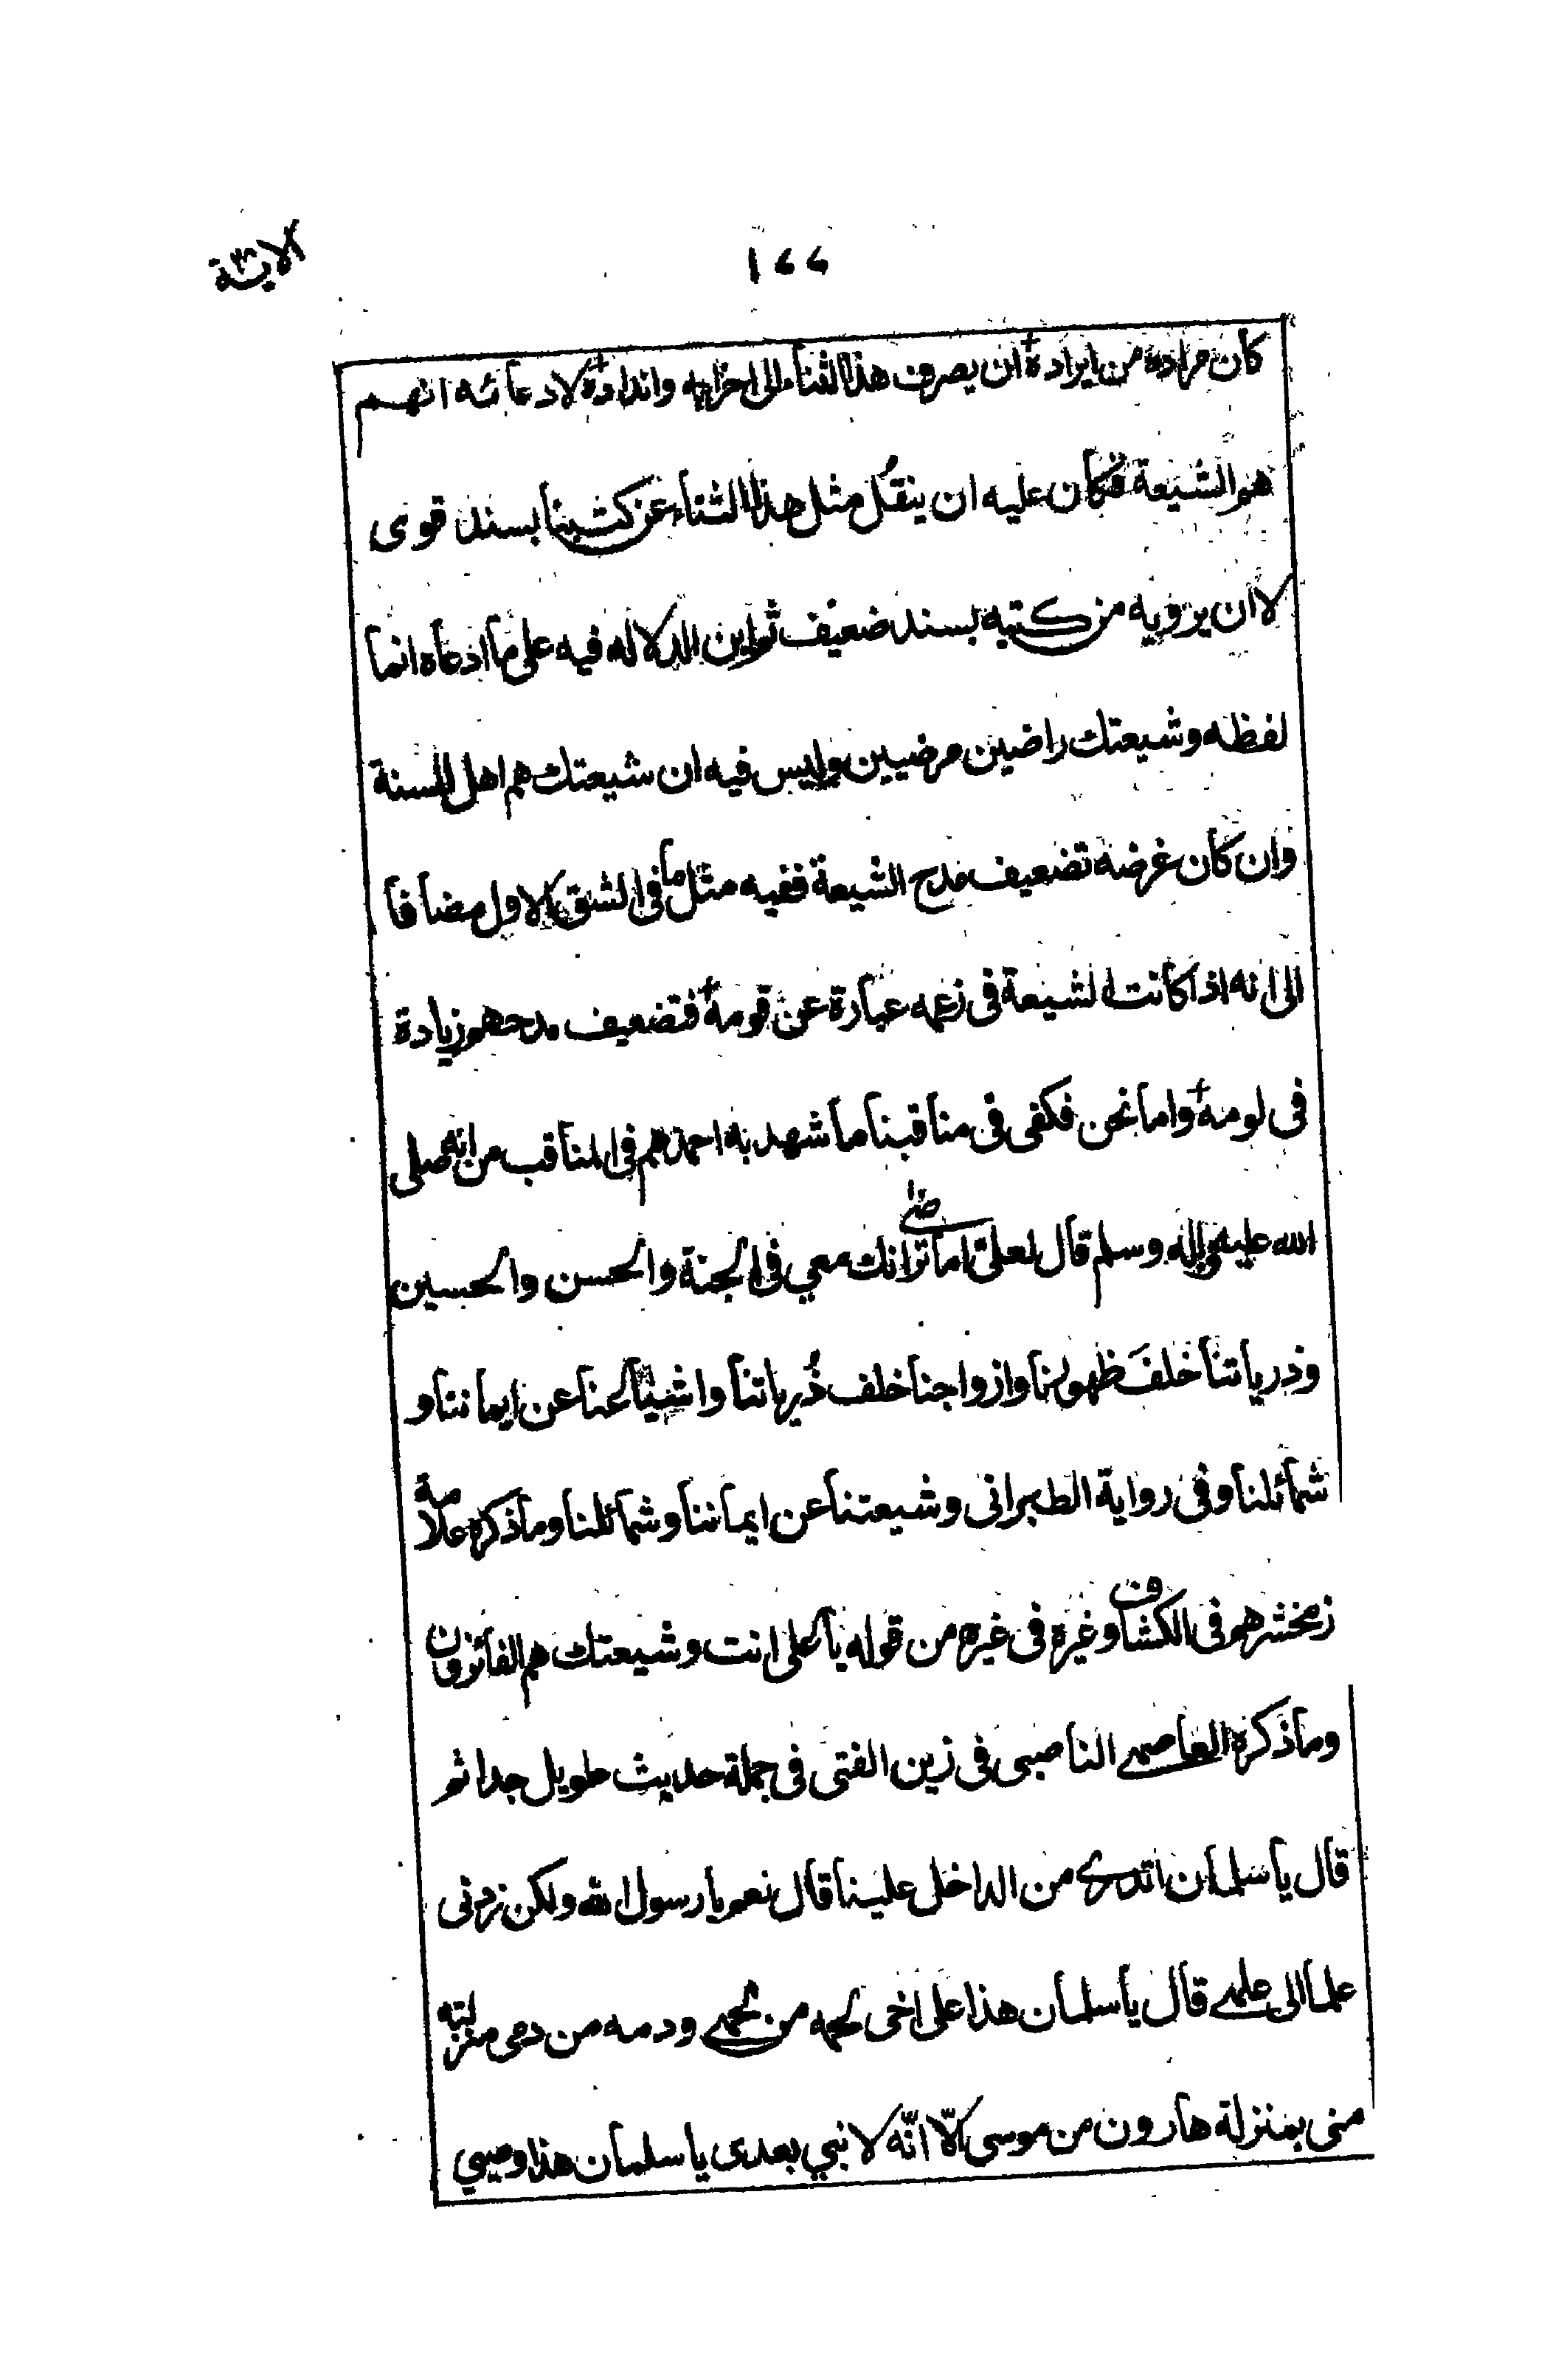 ١٧٧
الآية
كان مراده من ايراده ان يصرف هذا الثناء الى احزابه وانداده لادعائه انهم
هم الشيعة فكان عليه ان ينقل مثل هذا الثناء عن كتبنا بسند قوى
لا ان يرويه من كتبه بسند ضعيف ثم اين الدلاله فيه على ما ادعاه انما
لفظه وشيعتك راضين مرضيين وليس فيه ان شيعتك هم اهل السنة
وان كان غرضه تضعيف مدح الشيعة ففيه مثل ما فى الشق الاول مضافا
الى انه اذا كانت الشيعة فى زعمه عبارة عن قومه فتضعيف مدحهم زيادة
فى لومه واما نحن فكفى فى مناقبنا ما شهد به احمدهم فى المناقب من انه صلى
الله عليه واله وسلم قال لعلى اما ترضى انك معي فى الجنة والحسن والحسين
وذرياتنا خلف ظهورنا وازواجنا خلف ذرياتنا واشياعنا عن ايماننا و
شمائلنا وفى رواية الطبرانى وشيعتنا عن ايماننا وشمائلنا وما ذكره علامة
زمخشرهم فى الكشاف وغيره فى غيره من قوله يا على انت وشيعتك هم الفائزون
وما ذكره العاصمے الناصبى فى زين الفتى فى جملة حديث طويل جدا ثم
قال يا سلمان اتدرے من الداخل علينا قال نعم يا رسول الله ولكن زدنى
علما الى علمے قال يا سلمان هذا على اخى لحمه من لحمے ودمه من دمى منزلته
منى بمنزلة هارون من موسى الّا انّه لا نبي بعدى يا سلمان هذا وصيي